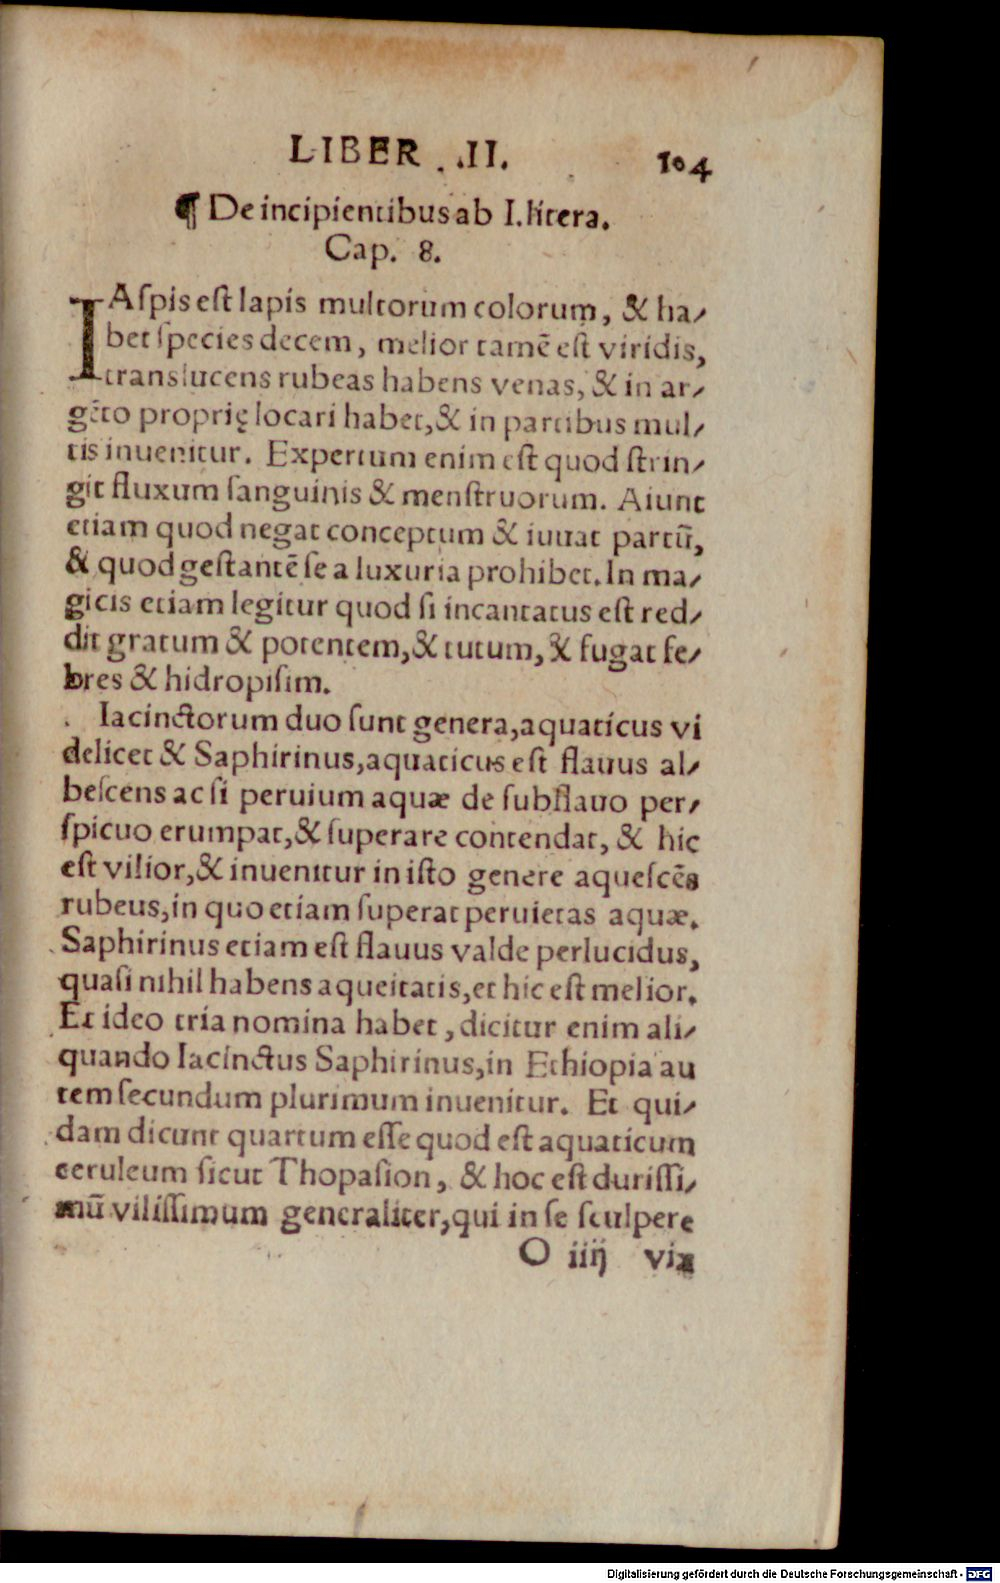 LIBER . .II. 104
¶ De incipientibus ab I. litera.
Cap. 8.
IAſpis eſt lapis multorum colorum, & ha-
bet ſpecies decem, melior tamẽ eſt viridis,
tranſlucens rubeas habens venas, & in ar-
gẽto proprię locari habet, & in partibus mul-
tis inuenitur. Expertum enim eſt quod ſtrin-
git fluxum ſanguinis & menſtruorum. Aiunt
etiam quod negat conceptum & iuuat partũ,
& quod geſtantẽ ſe a luxuria prohibet. In ma-
gicis etiam legitur quod ſi incantatus eſt red-
dit gratum & potentem, & tutum, & fugat fe-
bres & hidropiſim.
Iacinctorum duo ſunt genera, aquaticus vi
delicet & Saphirinus, aquaticus eſt flauus al-
beſcens ac ſi peruium aquæ de ſubflauo per-
ſpicuo erumpat, & ſuperare contendat, & hic
eſt vilior, & inuenitur in iſto genere aqueſcẽs
rubeus, in quo etiam ſuperat peruietas aquæ.
Saphirinus etiam eſt flauus valde perlucidus,
quaſi nihil habens aqueitatis, et hic eſt melior.
Et ideo tria nomina habet, dicitur enim ali-
quando Iacinctus Saphirinus, in Ethiopia au
tem ſecundum plurimum inuenitur. Et qui-
dam dicunt quartum eſſe quod eſt aquaticum
ceruleum ſicut Thopaſion, & hoc eſt duriſſi-
mũ viliſſimum generaliter, qui in ſe ſculpere
O iiij vix
Digitalisierung gefördert durch die Deutsche Forschungsgemeinschaft - DFG